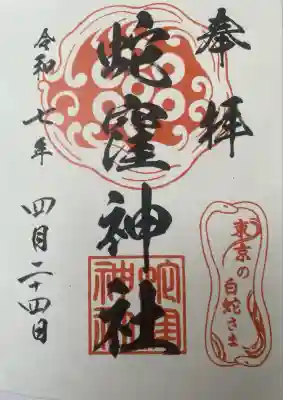 奉拝
蛇窪神社
令和七年
四月二十四日
東京の
白蛇さま
蛇窪神社